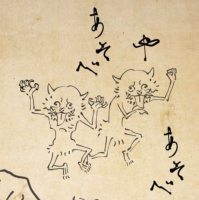 や
あそべ
あそべ